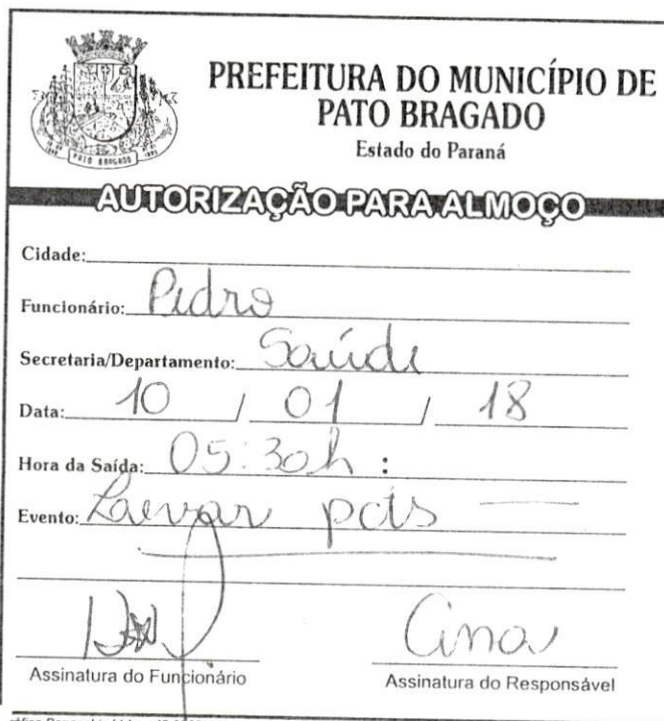 PREFEITURA DO MUNICÍPIO DE
PATO BRAGADO
Estado do Paraná
PATO BRAGADO
AUTORIZAÇÃO PARA ALMOÇO
Cidade:
Funcionário: Pedro
Secretaria/Departamento: Saúde
Data: 10 / 01 / 18
Hora da Saída: 05:30h :
Evento: Levar pcts
Ana
Assinatura do Funcionário
Assinatura do Responsável